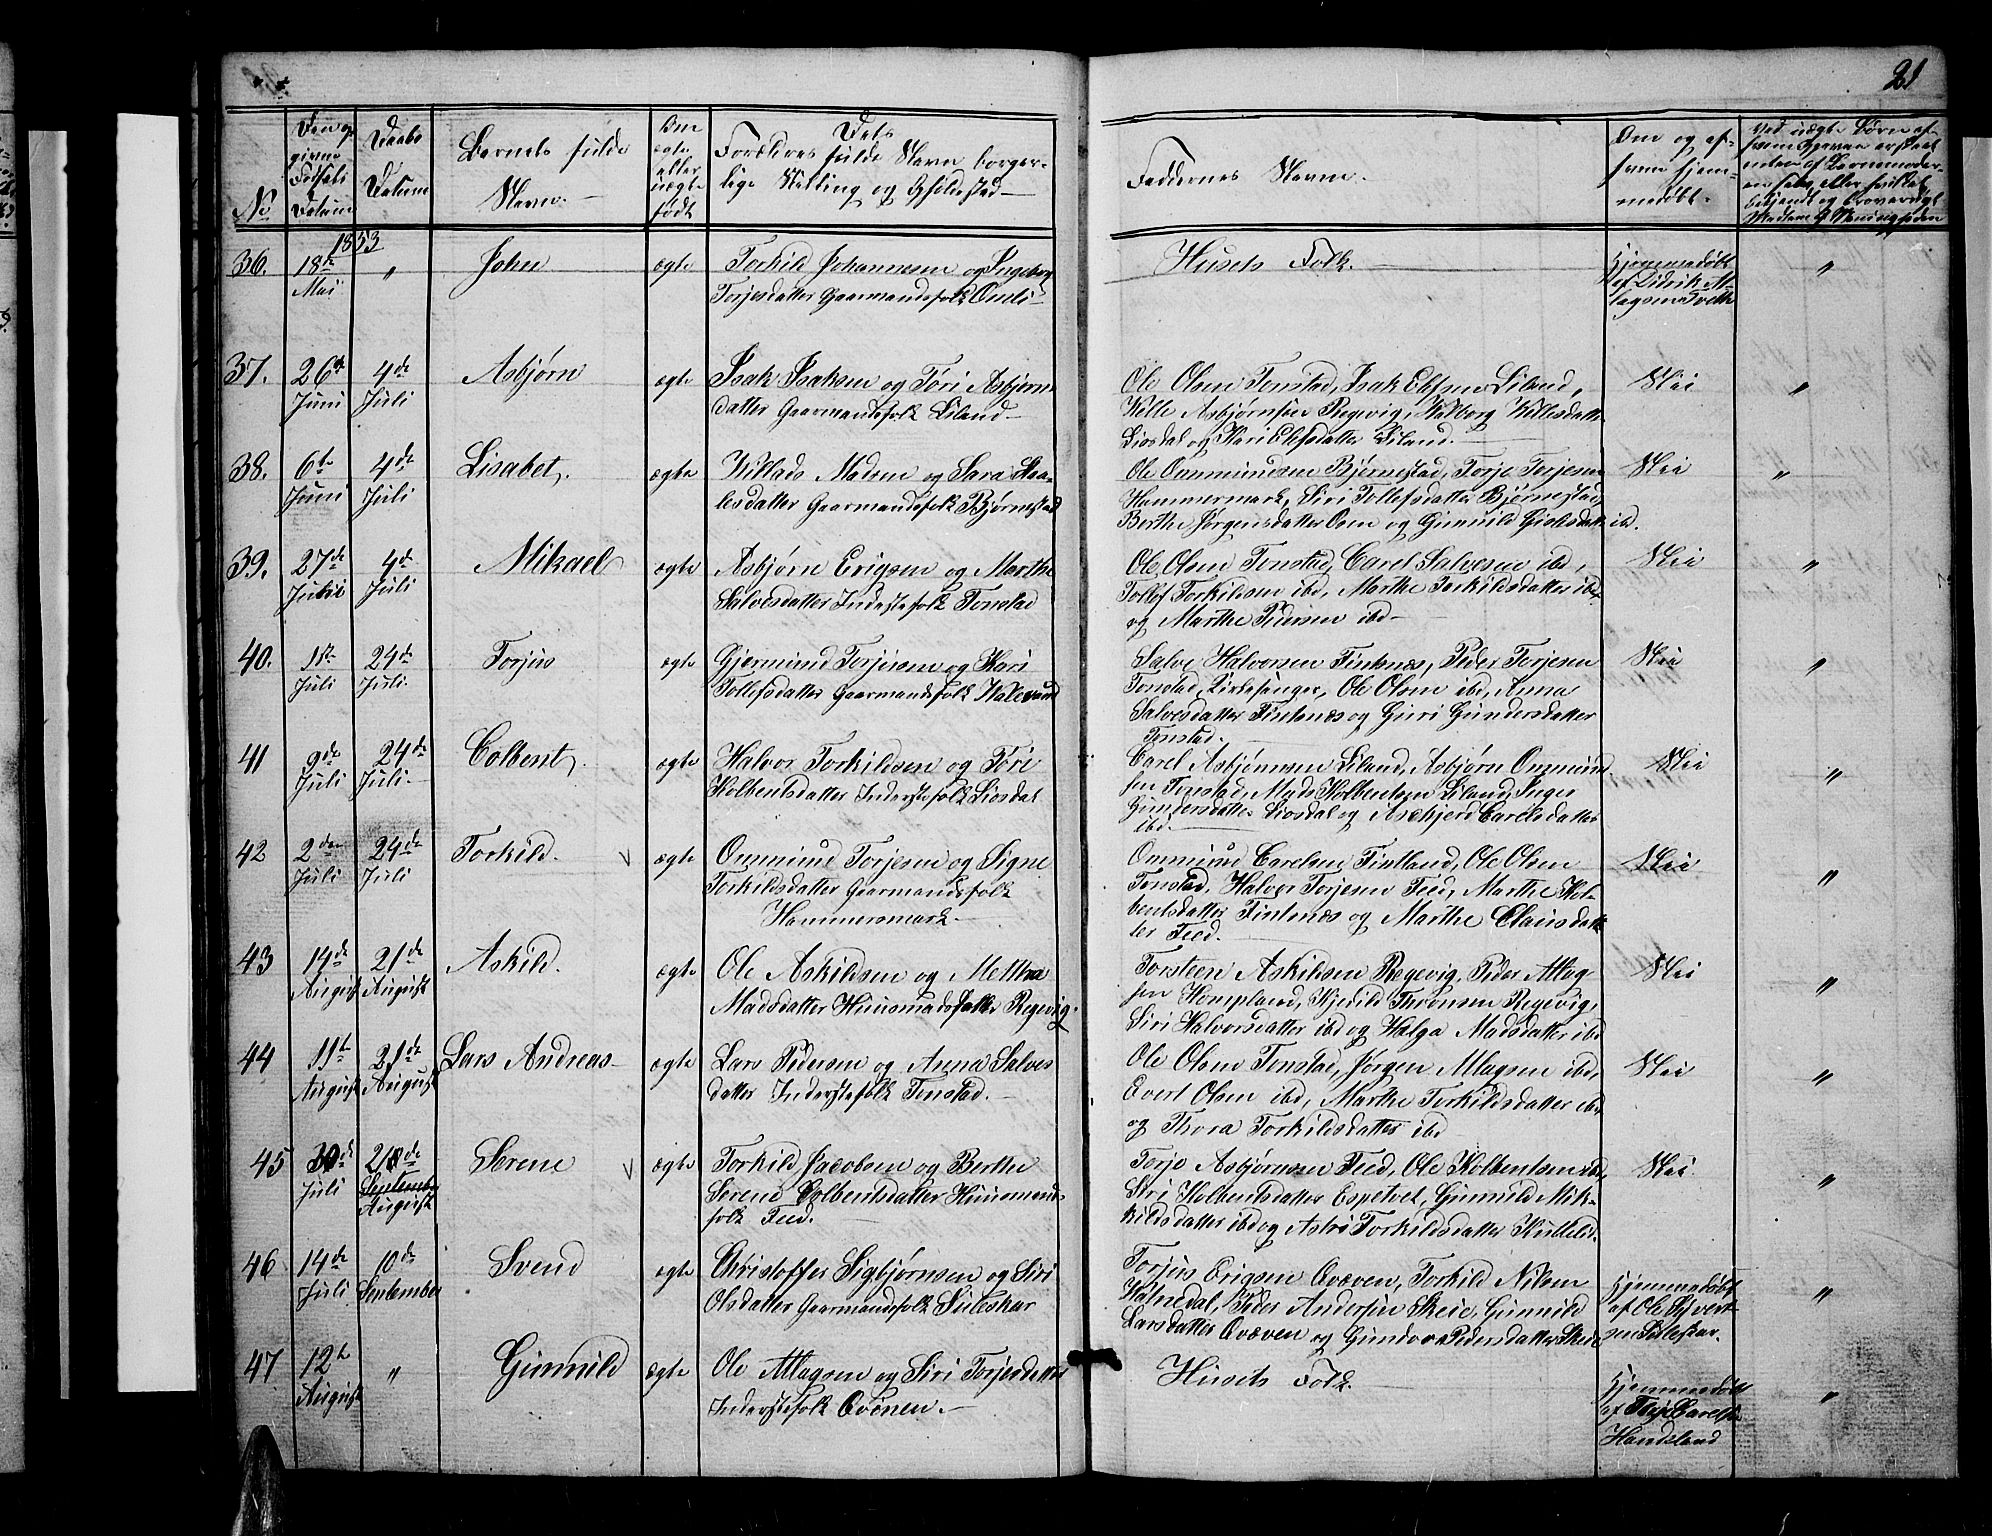 21
No
Den op
givne
Fødsels
Datum
Daabs
Datum
Barnets fulde
Navn.
Om
ægte
eller
uægte
født
Dets
Forældres fulde Navn borger-
lige Stilling og Opholdsted
Faddernes Navne.
Om og af
hvem hjem-
medøbt.
1853
36. 18de Mai " John ægte
Torkild Johannesen og Ingeborg
Torjesdatter Gaarmandsfolk Omli
Husets Folk.
Hjemmedøbt
af Didrik A-
lagsen Tvette
"
37. 26de Juni 4de Juli Asbjørn ægte
Isak Isaksen og Tøri Asbjørns
datter Gaarmandsfolk Liland
Ole Olsen Tonstad, Isak Elefsen Liland,
Asbjørnsen Regevig, Valborg
Liosdal og Kari Elefsdatter Liland.
Nei
"
38. 6te Juni 4de Juli Lisabet. ægte
Villads Madsen og Sara Laa-
lesdatter Gaarmandsfolk Bjørnestad
Ole Ommundsen Bjørnestad, Torje Torjesen
Hammermark, Siri Tollefsdatter Bjørnestad,
Berthe Jørgensdatter Osen og Gunnild ibd.
Nei
"
39. 27de Juni 4de Juli Mikael ægte
Asbjørn Erigsen og Marthe
Salvesdatter Inderstefolk Tonstad
Ole Olsen Tonstad, Carel Salvesen ibd,
Tollef Torkildsen ibd, Marthe Torkildsdatter ibd
og Marthe Pedersen ibd
Nei
"
40. 1ste Juli 24de Juli. Torjus ægte
Gjermund Torjusen og Kari
Tollefsdatter Gaarmandsfolk Walevand
Salve Halvorsen Fintnæs, Peder Torjesen
Tonstad, Kirkesanger, Ole Olsen ibd, Anna
Salvesdatter Fintnæs og Guri Gundersdatter
Tonstad.
Nei
"
41 9de Juli 24de Juli. Colbent. ægte
Halvor Torkildsen og Tøri
Kolbentsdatter Inderstefolk Liosdal
Carel Asbjørnsen Liland, Asbjørn Ommund
sen Tonstad, Mads Kolbentsen Liland, Inger
Gundersdatter Liosdal og Askjerd Carelsdatter
ibd.
Nei
"
42 2den Juli 24de Juli Torkild. ægte
Ommund Torjesen og Signe
Torkildsdatter Gaarmandsfolk
Hammersmark.
Ommund Carelsen Fintland, Ole Olsen
Tonstad, Halvor Torjesen Feed, Marthe Kol-
bentsdatter Fintnæs og Marthe Clausdat-
ter Feed.
Nei
"
43 14de August 21de August Askild. ægte
Ole Askildsen og Mettha
Madsdatter Huusmandsfolk Regevig.
Torsteen Askildsen Regevig, Peder Atlag
sen Hompland, Kjedild Thronsen Regevig,
Siri Halvorsdatter ibd og Helga Madsdatter ibd
Nei
"
44 11te August 21de August Lars Andreas ægte
Lars Pedersen og Anna Salves
datter Inderstefolk Tonstad.
Ole Olsen Tonstad, Jørgen Atlagsen ibd,
Evert Olsen ibd, Marthe Torkildsdatter ibd
og Thora Torkildsdatter ibd
Nei
"
45 30de Juli 28de September August Serene ægte
Torkild Jacobsen og Berthe
Serene Colbentsdatter Huusmands-
folk Feed.
Torje Asbjørnsen Feed, Ole Kolbentsen ibd,
Siri Kolbentsdatter Espetvet, Gunnild Mik-
kildsdatter ibd og Astri Torkildsdatter
Nei
"
46 14de Juli 10de September Svend ægte
Christoffer Sigbjørnsen og Siri
Olsdatter Gaarmandsfolk Suleskar
Torjus Erigsen Qvæven, Torkild Nilsen
Peder Andersen Skeie, Gunnild
Larsdatter Qvæven og Gundvor Pedersdatter Skeie
Hjemmedøbt
af Ole Sivert-
sen Suleskar.
"
47 12te August " Gunnild ægte
Ole Atlagsen og Siri Torjesdatter
Inderstefolk Qvinen.
Husets Folk.
Hjemmedøbt
af Torje Carelsen
Haukland
"